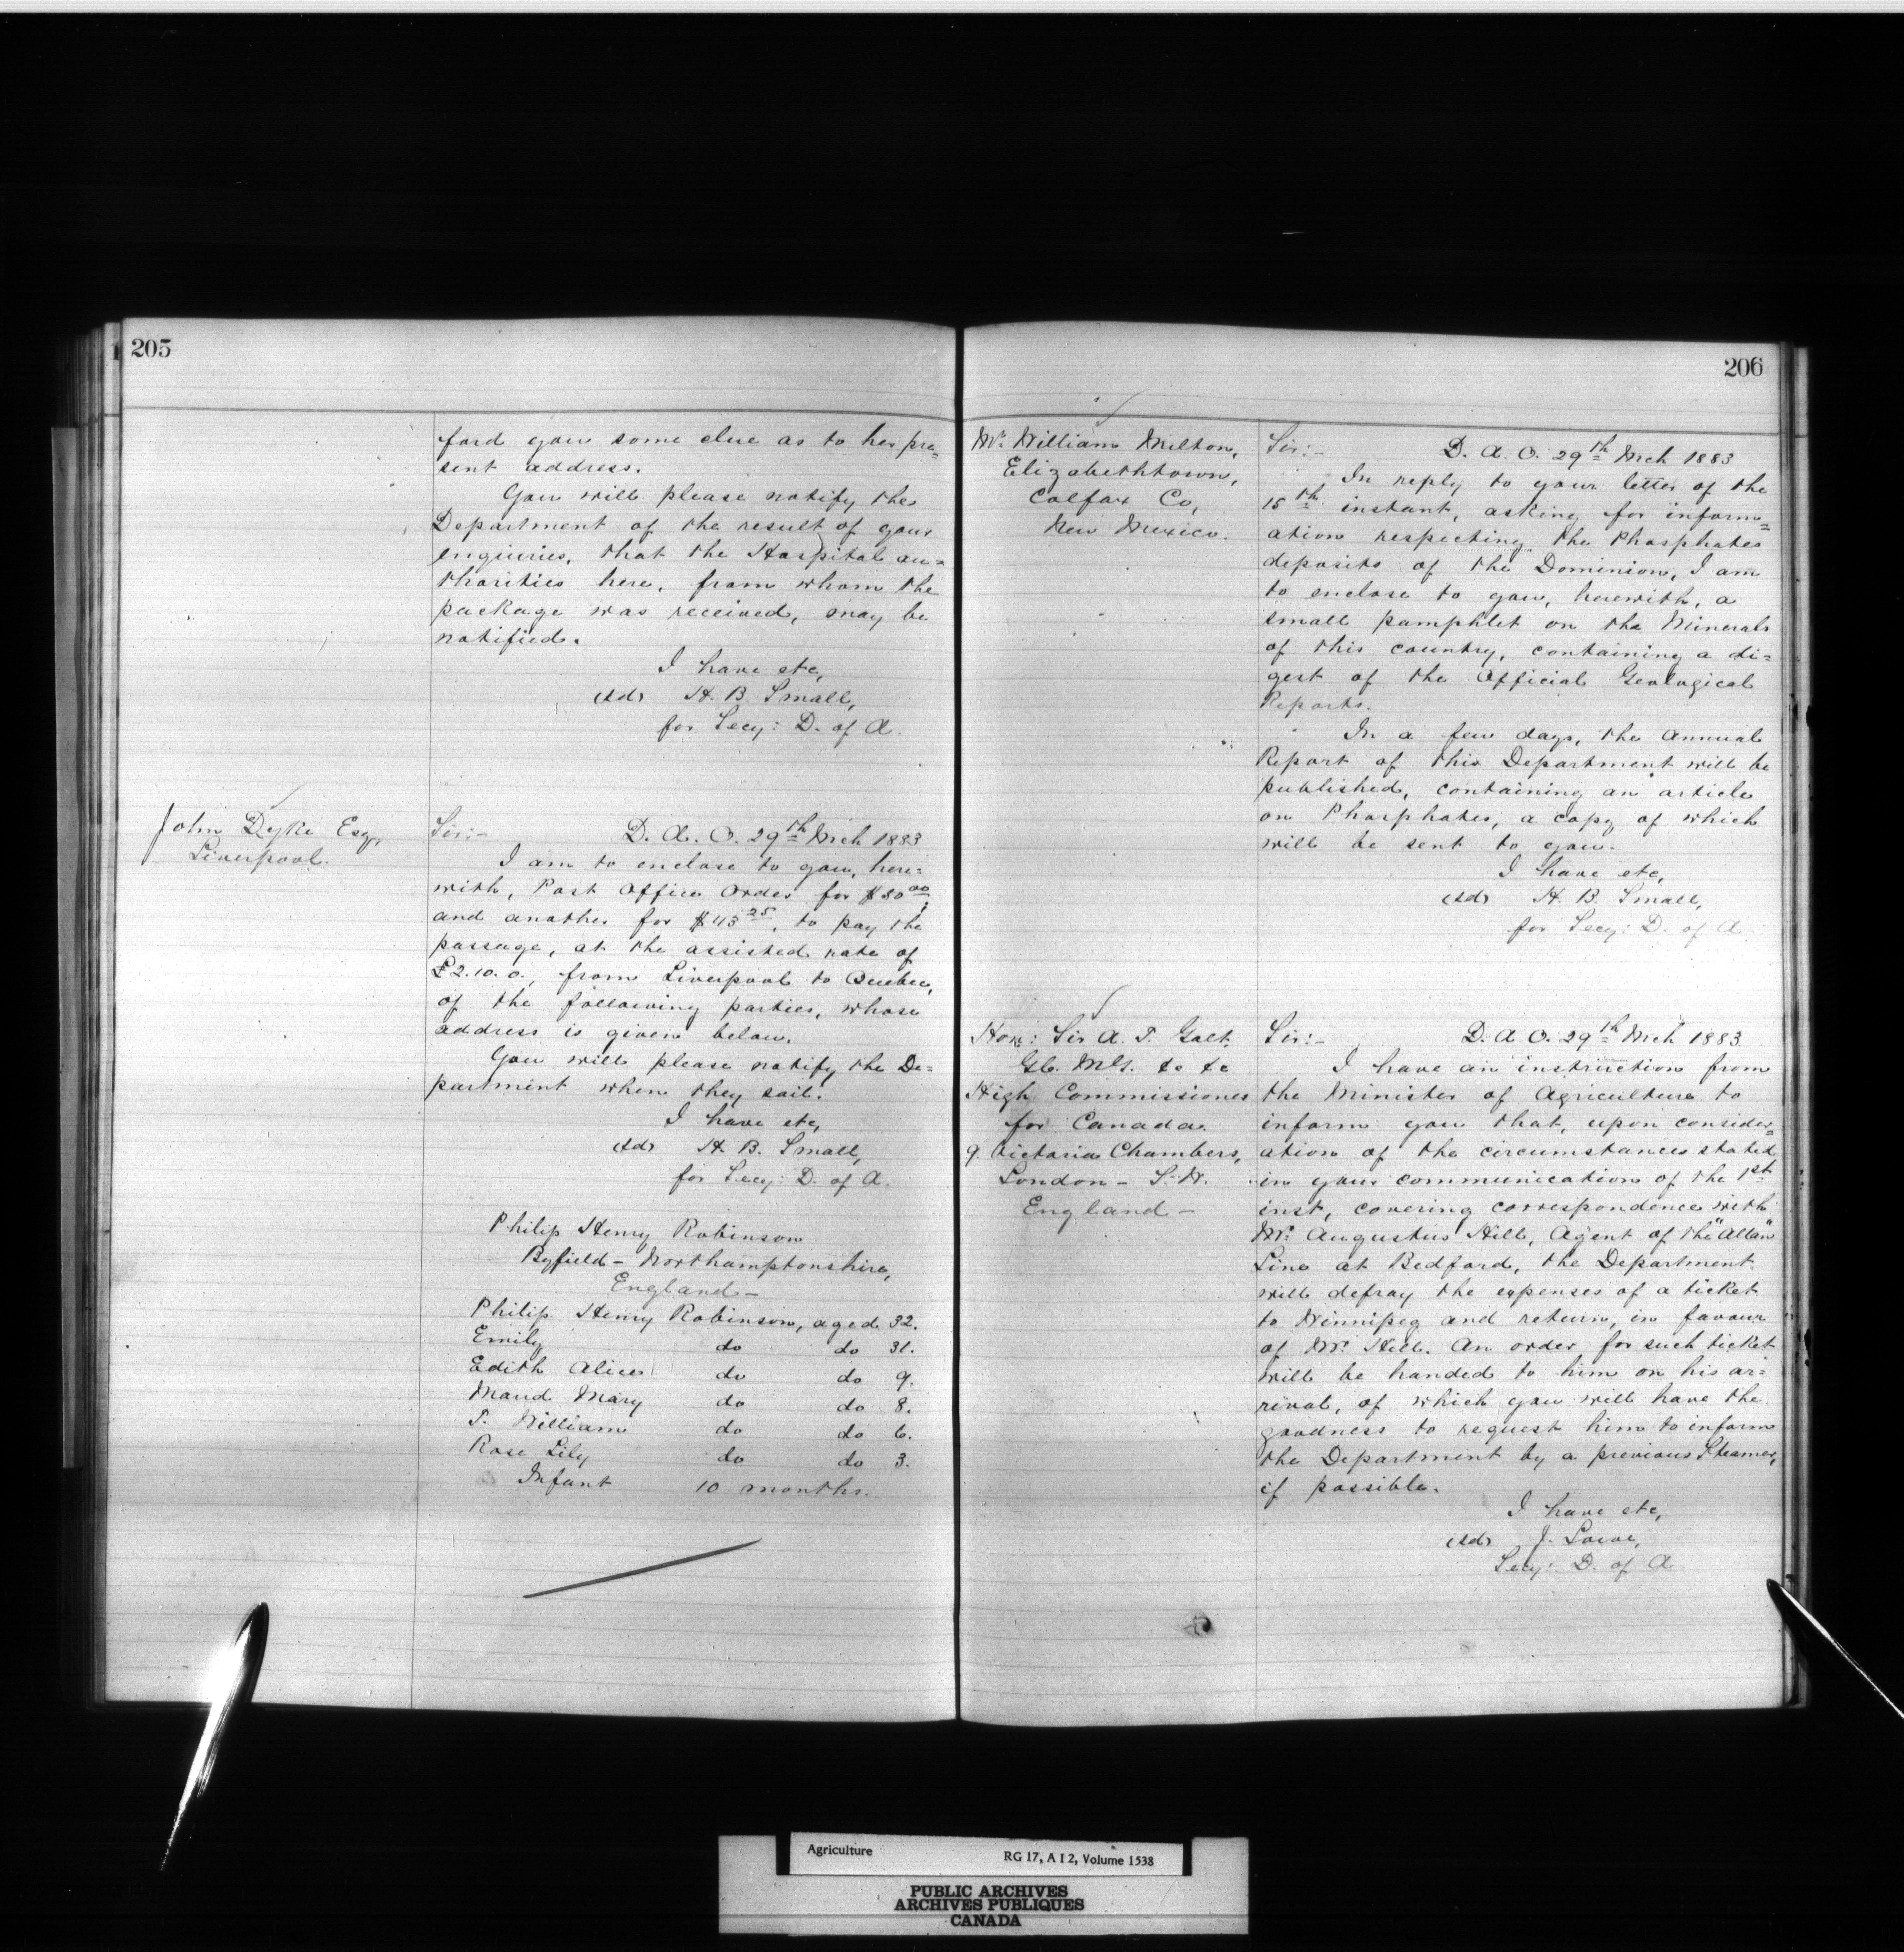 205
ford you some clue as to her pre=
sent address.
You will please notify the
Department of the result of your
enquiries, that the Hospital au=
thorities here, from whom the
package was received, may be
notified.
I have etc,
(sd) H. B. Small,
for Secy: D. of A.
John Dyke Esq,
Liverpool.
Sir:- D. A. O. 29th Mch 1883
I am to enclose to you, here=
with, Post Office Order for $50.00,
and another for $43.25, to pay the
passage, at the assisted rate of
£2.10.0., from Liverpool to Quebec,
of the following parties, whose
address is given below.
You will please notify the De=
partment when they sail.
I have etc,
(sd) H. B. Small,
for Secy: D. of A.
Philip Henry Robinson
Byfield - Northamptonshire,
England -
Philip Henry Robinson, aged 32.
Emily do do 31.
Edith Alice do do 9.
Maud Mary do do 8.
T. William do do 6.
Rose Lily do do 3.
Infant 10 months.
206
Mr. William Milton,
Elizabethtown,
Colfax Co,
New Mexico.
Sir:- D. A. O. 29th Mch 1883
In reply to your letter of the
15th instant, asking for inform=
ation respecting the Phosphates
deposits of the Dominion, I am
to enclose to you, herewith, a
small pamphlet on the Minerals
of this country, containing a di=
gest of the Official Geological
Reports.
In a few days, the Annual
Report of this Department will be
published, containing an article
on Phosphates, a copy of which
will be sent to you.
I have etc,
(sd) H. B. Small,
for Secy: D. of A
Hon: Sir A. T. Galt,
&c &c
High Commissioner
for Canada.
9. Victoria Chambers,
London - S. W.
England -
Sir:- D. A. O. 29th Mch 1883.
I have an instruction from
the Minister of Agriculture to
inform you that, upon consider=
ation of the circumstances stated
in your communication of the 1st
inst, covering correspondence with
Mr. Augustus Hill, Agent of the "Allan"
Line at Bedford, the Department
will defray the expenses of a ticket
to Winnipeg and return, in favour
of Mr. Hill. An order for such ticket
will be handed to him on his ar=
rival, of which you will have the
goodness to request him to inform
the Department by a previous Steamer,
if possible.
I have etc,
(sd) J. Lowe,
Secy: D. of A
Agriculture
RG 17, A I 2, Volume 1538
PUBLIC ARCHIVES
ARCHIVES PUBLIQUES
CANADA